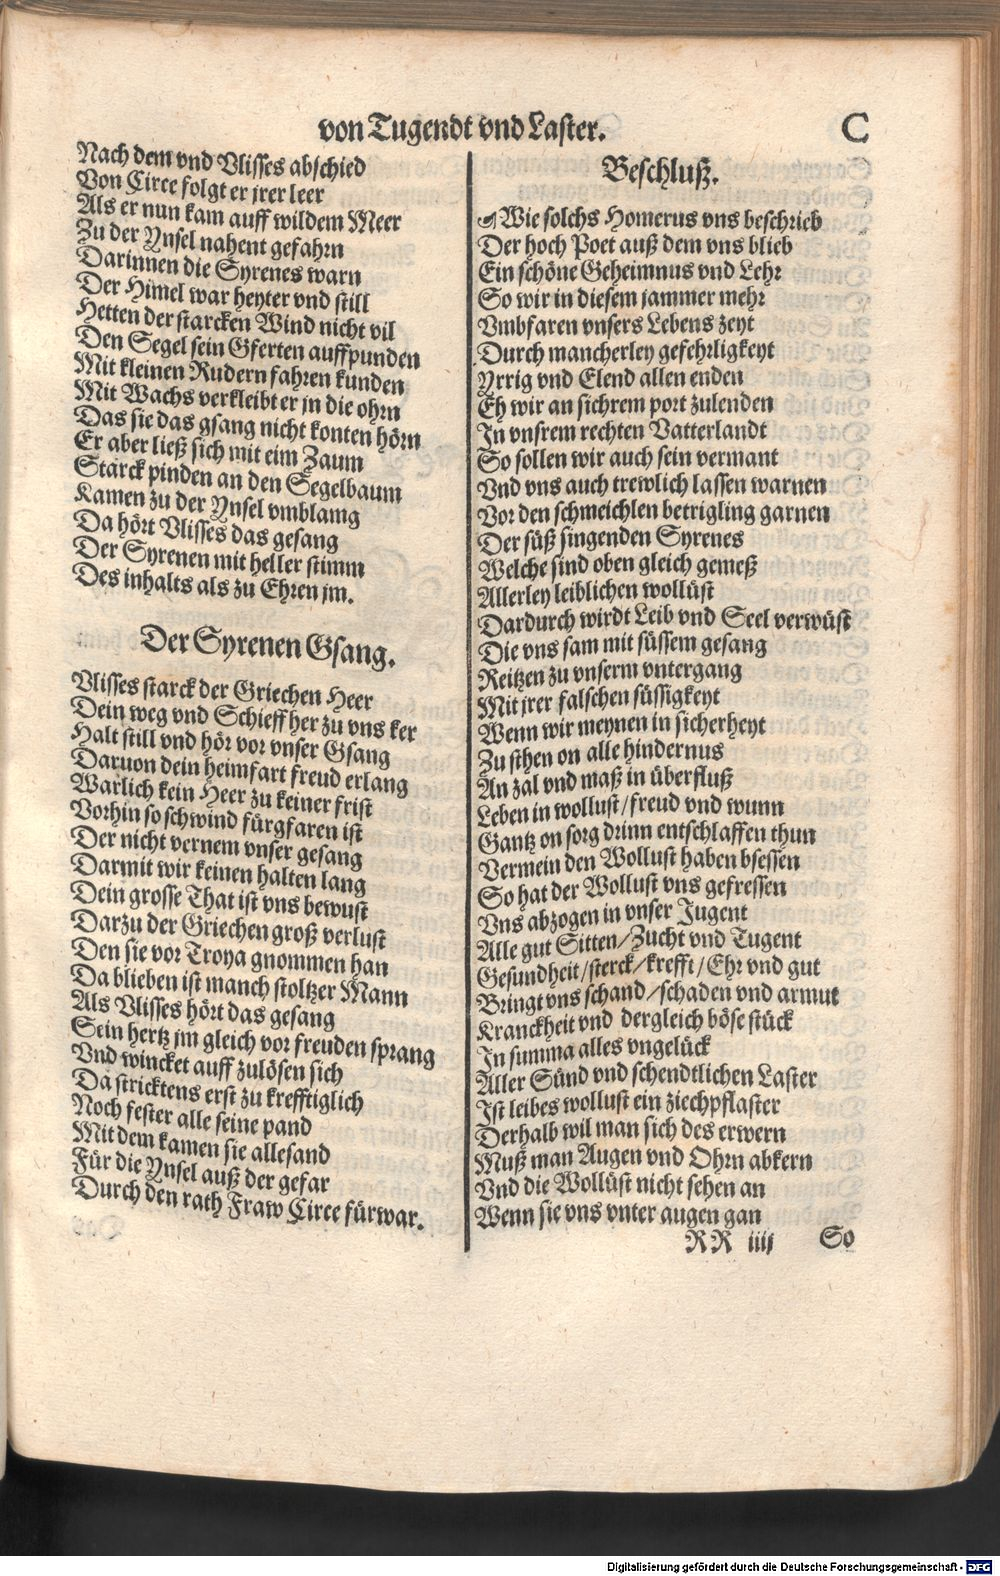 von Tugendt vnd Laster.
C
Nach dem vnd Vlisses abschied
Von Circe folgt er jrer leer
Als er nun kam auff wildem Meer
Zu der Ynsel nahent gefahrn
Darinnen die Syrenes warn
Der Himel war heyter vnd still
Hetten der starcken Wind nicht vil
Den Segel sein Gferten auffpunden
Mit kleinen Rudern fahren kunden
Mit Wachs verkleibt er jn die ohrn
Das sie das gsang nicht konten hörn
Er aber ließ sich mit eim Zaum
Starck pinden an den Segelbaum
Kamen zu der Ynsel vmblang
Da hört Vlisses das gesang
Der Syrenen mit heller stimm
Des inhalts als zu Ehren jm.
Der Syrenen Gsang.
Vlisses starck der Griechen Heer
Dein weg vnd Schieff her zu vns ker
Halt still vnd hör vor vnser Gsang
Daruon dein heimfart freud erlang
Warlich kein Heer zu keiner frist
Vorhin so schwind fürgfaren ist
Der nicht vernem vnser gesang
Darmit wir keinen halten lang
Dein grosse That ist vns bewust
Darzu der Griechen groß verlust
Den sie vor Troya gnommen han
Da blieben ist manch stoltzer Mann
Als Vlisses hört das gesang
Sein hertz jm gleich vor freuden sprang
Vnd wincket auff zulösen sich
Da stricktens erst zu krefftiglich
Noch fester alle seine pand
Mit dem kamen sie allesand
Für die Ynsel auß der gefar
Durch den rath Fraw Circe fürwar.
Beschluß.
Wie solchs Homerus vns beschrieb
Der hoch Poet auß dem vns blieb
Ein schöne Geheimnus vnd Lehr
So wir in diesem jammer mehr
Vmbfaren vnsers Lebens zeyt
Durch mancherley gefehrligkeyt
Yrrig vnd Elend allen enden
Eh wir an sichrem port zulenden
In vnsrem rechten Vatterlandt
So sollen wir auch sein vermant
Vnd vns auch trewlich lassen warnen
Vor den schmeichlen betrigling garnen
Der süß singenden Syrenes
Welche sind oben gleich gemeß
Allerley leiblichen wollüst
Dardurch wirdt Leib vnd Seel verwüst
Die vns sam mit süssem gesang
Reitzen zu vnserm vntergang
Mit jrer falschen süssigkeyt
Wenn wir meynen in sicherheyt
Zu sthen on alle hindernus
An zal vnd maß in überfluß
Leben in wollust/freud vnd wunn
Gantz on sorg drinn entschlaffen thun
Vermein den Wollust haben bsessen
So hat der Wollust vns gefressen
Vns abzogen in vnser Jugent
Alle gut Sitten/Zucht vnd Tugent
Gesundheit/sterck/krefft/Ehr vnd gut
Bringt vns schand/schaden vnd armut
Kranckheit vnd dergleich böse stück
In summa alles vngelück
Aller Sünd vnd schendtlichen Laster
Ist leibes wollust ein ziechpflaster
Derhalb wil man sich des erwern
Muß man Augen vnd Ohrn abkern
Vnd die Wollüst nicht sehen an
Wenn sie vns vnter augen gan
RR iiij
So
Digitalisierung gefördert durch die Deutsche Forschungsgemeinschaft - DFG